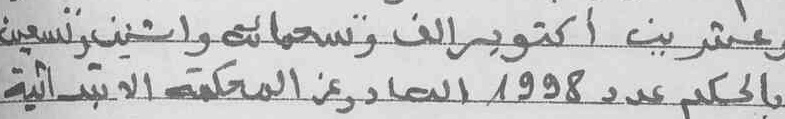 وعشرين أكتوبر الف وتسعمائة واثنين وتسعين
بالحكم عدد 1998 الصادر عن المحكمة الابتدائية